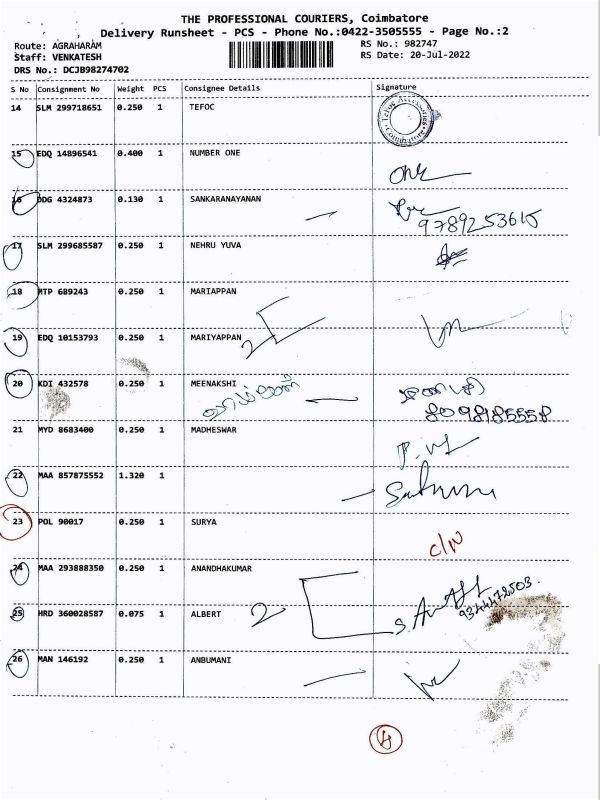 THE PROFESSIONAL COURIERS, Coimbatore
Delivery Runsheet - PCS - Phone No.:0422-3505555 - Page No.:2
Route: AGRAHARAM
RS No.: 982747
Staff: VENKATESH
RS Date: 20-Jul-2022
DRS No.: DCJB98274702
S No Consignment No Weight PCS Consignee Details Signature
14 SLM 299718651 0.250 1 TEFOC
Tefoc Accessories Coimbatore
15 EDQ 14896541 0.400 1 NUMBER ONE
16 DDG 4324873 0.130 1 SANKARANAYANAN
9789253615
17 SLM 299685587 0.250 1 NEHRU YUVA
18 MTP 689243 0.250 1 MARIAPPAN
19 EDQ 10153793 0.250 1 MARIYAPPAN
2
20 KDI 432578 0.250 1 MEENAKSHI
8098185558
21 MYD 8683400 0.250 1 MADHESWAR
22 MAA 857875552 1.320 1
23 POL 90017 0.250 1 SURYA
C/N
24 MAA 293888350 0.250 1 ANANDHAKUMAR
9344472503
25 HRD 360028587 0.075 1 ALBERT 2
26 MAN 146192 0.250 1 ANBUMANI
4